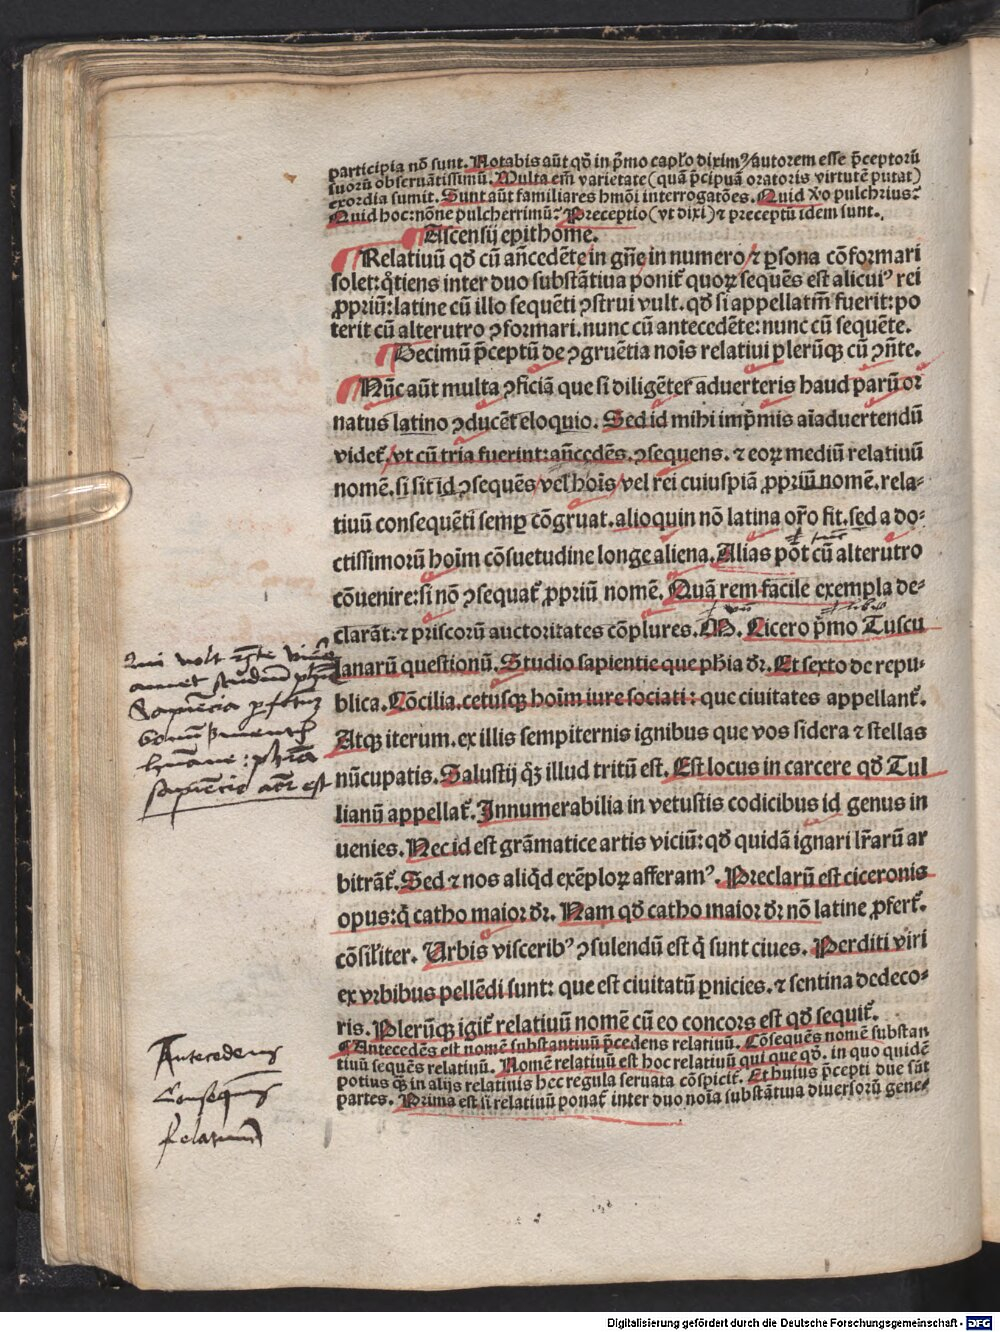 participia nõ sunt. Notabis aũt qđ in p̃mo cap̃lo diximꝰ/autorem esse p̃ceptorũ
suorũ obseruãtissimũ. Multa em̃ varietate (quã p̃cipuã oratoris virtutẽ putat)
exordia sumit. Sunt aũt familiares hmõi interrogatões. Quid ꝟo pulchrius?
Quid hoc: nõne pulcherrimũ? Preceptio (vt dixi) ⁊ preceptũ idem sunt.
Ascensij epithome.
Relatiuũ qđ cũ añcedẽte in gñe in numero/⁊ ꝑsona cõformari
solet: q̊tiens inter duo substãtiua ponit᷒ quoꝝ sequẽs est alicuiꝰ rei
ꝓpriũ: latine cũ illo sequẽti ꝯstrui vult. qđ si appellatiũ fuerit: po
terit cũ alterutro ꝯformari. nunc cũ antecedẽte: nunc cũ sequẽte.
Decimũ p̃ceptũ de ꝯgruẽtia nois relatiui plerũqꝫ cũ ꝯñte.
Nũc aũt multa ꝯficiã que si diligẽter᷒ aduerteris haud parũ or
natus latino ꝯducẽt eloquio. Sed id mihi imp̃mis aĩaduertendũ
videt᷒/vt cũ tria fuerint: añcedẽs. ꝯsequens. ⁊ eoꝝ mediũ relatiuũ
nomẽ. si sit id ꝯsequẽs/vel hoĩs/vel rei cuiuspiã ꝓpriũ nomẽ. rela-
tiuũ consequẽti semꝑ cõgruat. alioquin nõ latina or̃o fit. sed a do-
ctissimorũ hoĩm cõsuetudine longe aliena. Alias põt cũ alterutro
cõuenire: si nõ ꝯsequat᷒ ꝓpriũ nomẽ. Quã rem facile exempla de-
clarãt: ⁊ priscorũ auctoritates cõplures. M. Cicero p̃mo Tuscu
lanarũ questionũ. Studio sapientie que ph̃ia dr̃. Et sexto de repu-
blica. Cõcilia. cetusqꝫ hoĩm iure sociati: que ciuitates appellant᷒.
Atqꝫ iterum. ex illis sempiternis ignibus que vos sidera ⁊ stellas
nũcupatis. Salustij qꝫ illud tritũ est. Est locus in carcere qđ Tul
lianũ appellat᷒. Innumerabilia in vetustis codicibus id genus in
uenies. Nec id est grãmatice artis viciũ: qđ quidã ignari lr̃arũ ar
bitrãt᷒. Sed ⁊ nos aliqđ exẽploꝝ afferamꝰ. Preclarũ est ciceronis
opus: q̃ catho maior dr̃. Nam qđ catho maior dr̃ nõ latine ꝓfert᷒.
cõsiliter. Urbis visceribꝰ ꝯsulendũ est q̃ sunt ciues. Perditi viri
ex vrbibus pellẽdi sunt: que est ciuitatũ ꝑnicies. ⁊ sentina dedeco-
ris. Plerũqꝫ igit᷒ relatiuũ nomẽ cũ eo concors est qđ sequit᷒.
Antecedẽs est nomẽ substantiuũ p̃cedens relatiuũ. Cõsequẽs nomẽ substan
tiuũ sequẽs relatiuũ. Nomẽ relatiuũ est hoc relatiuũ qui que qđ. in quo quidẽ
potius qꝫ in alijs relatiuis hec regula seruata cõspicit᷒. Et huius p̃cepti due sũt
partes. Prima est si relatiuũ ponat᷒ inter duo noĩa substãtiua diuersorũ gene-
Antecedens
Consequens
Relatiuum
Digitalisierung gefördert durch die Deutsche Forschungsgemeinschaft - DFG